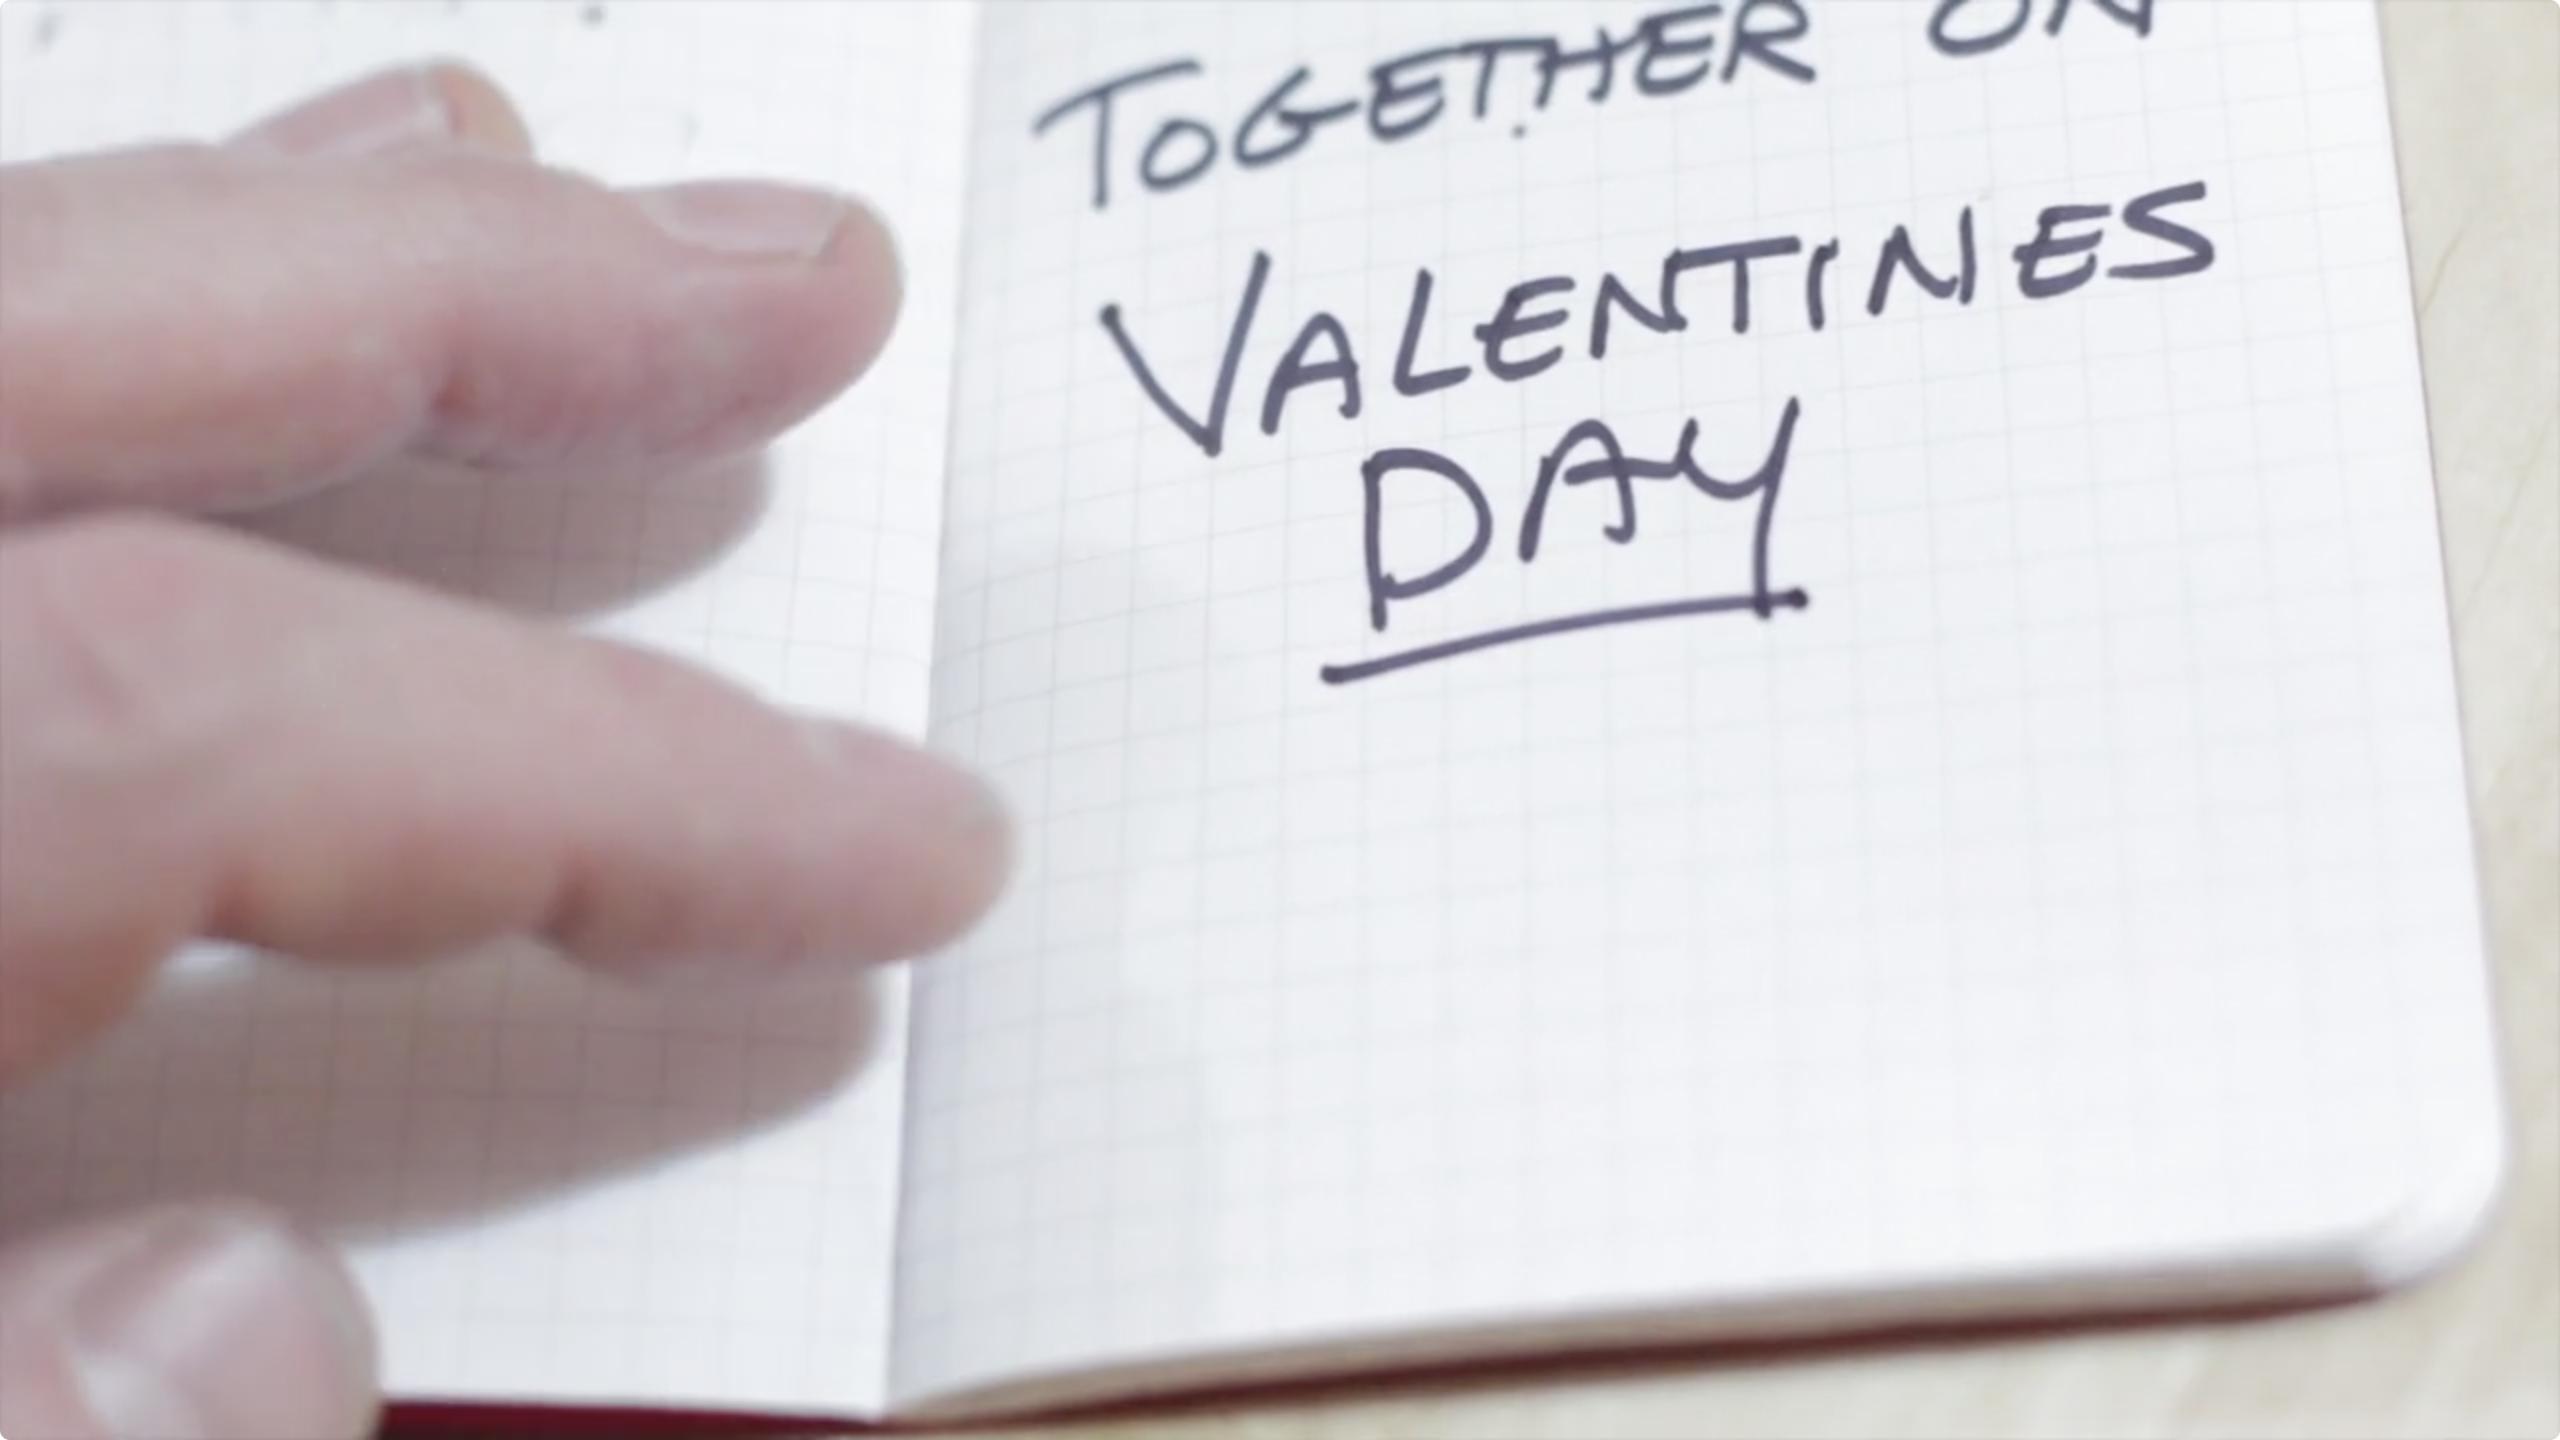 TOGETHER ON
VALENTINES
DAY